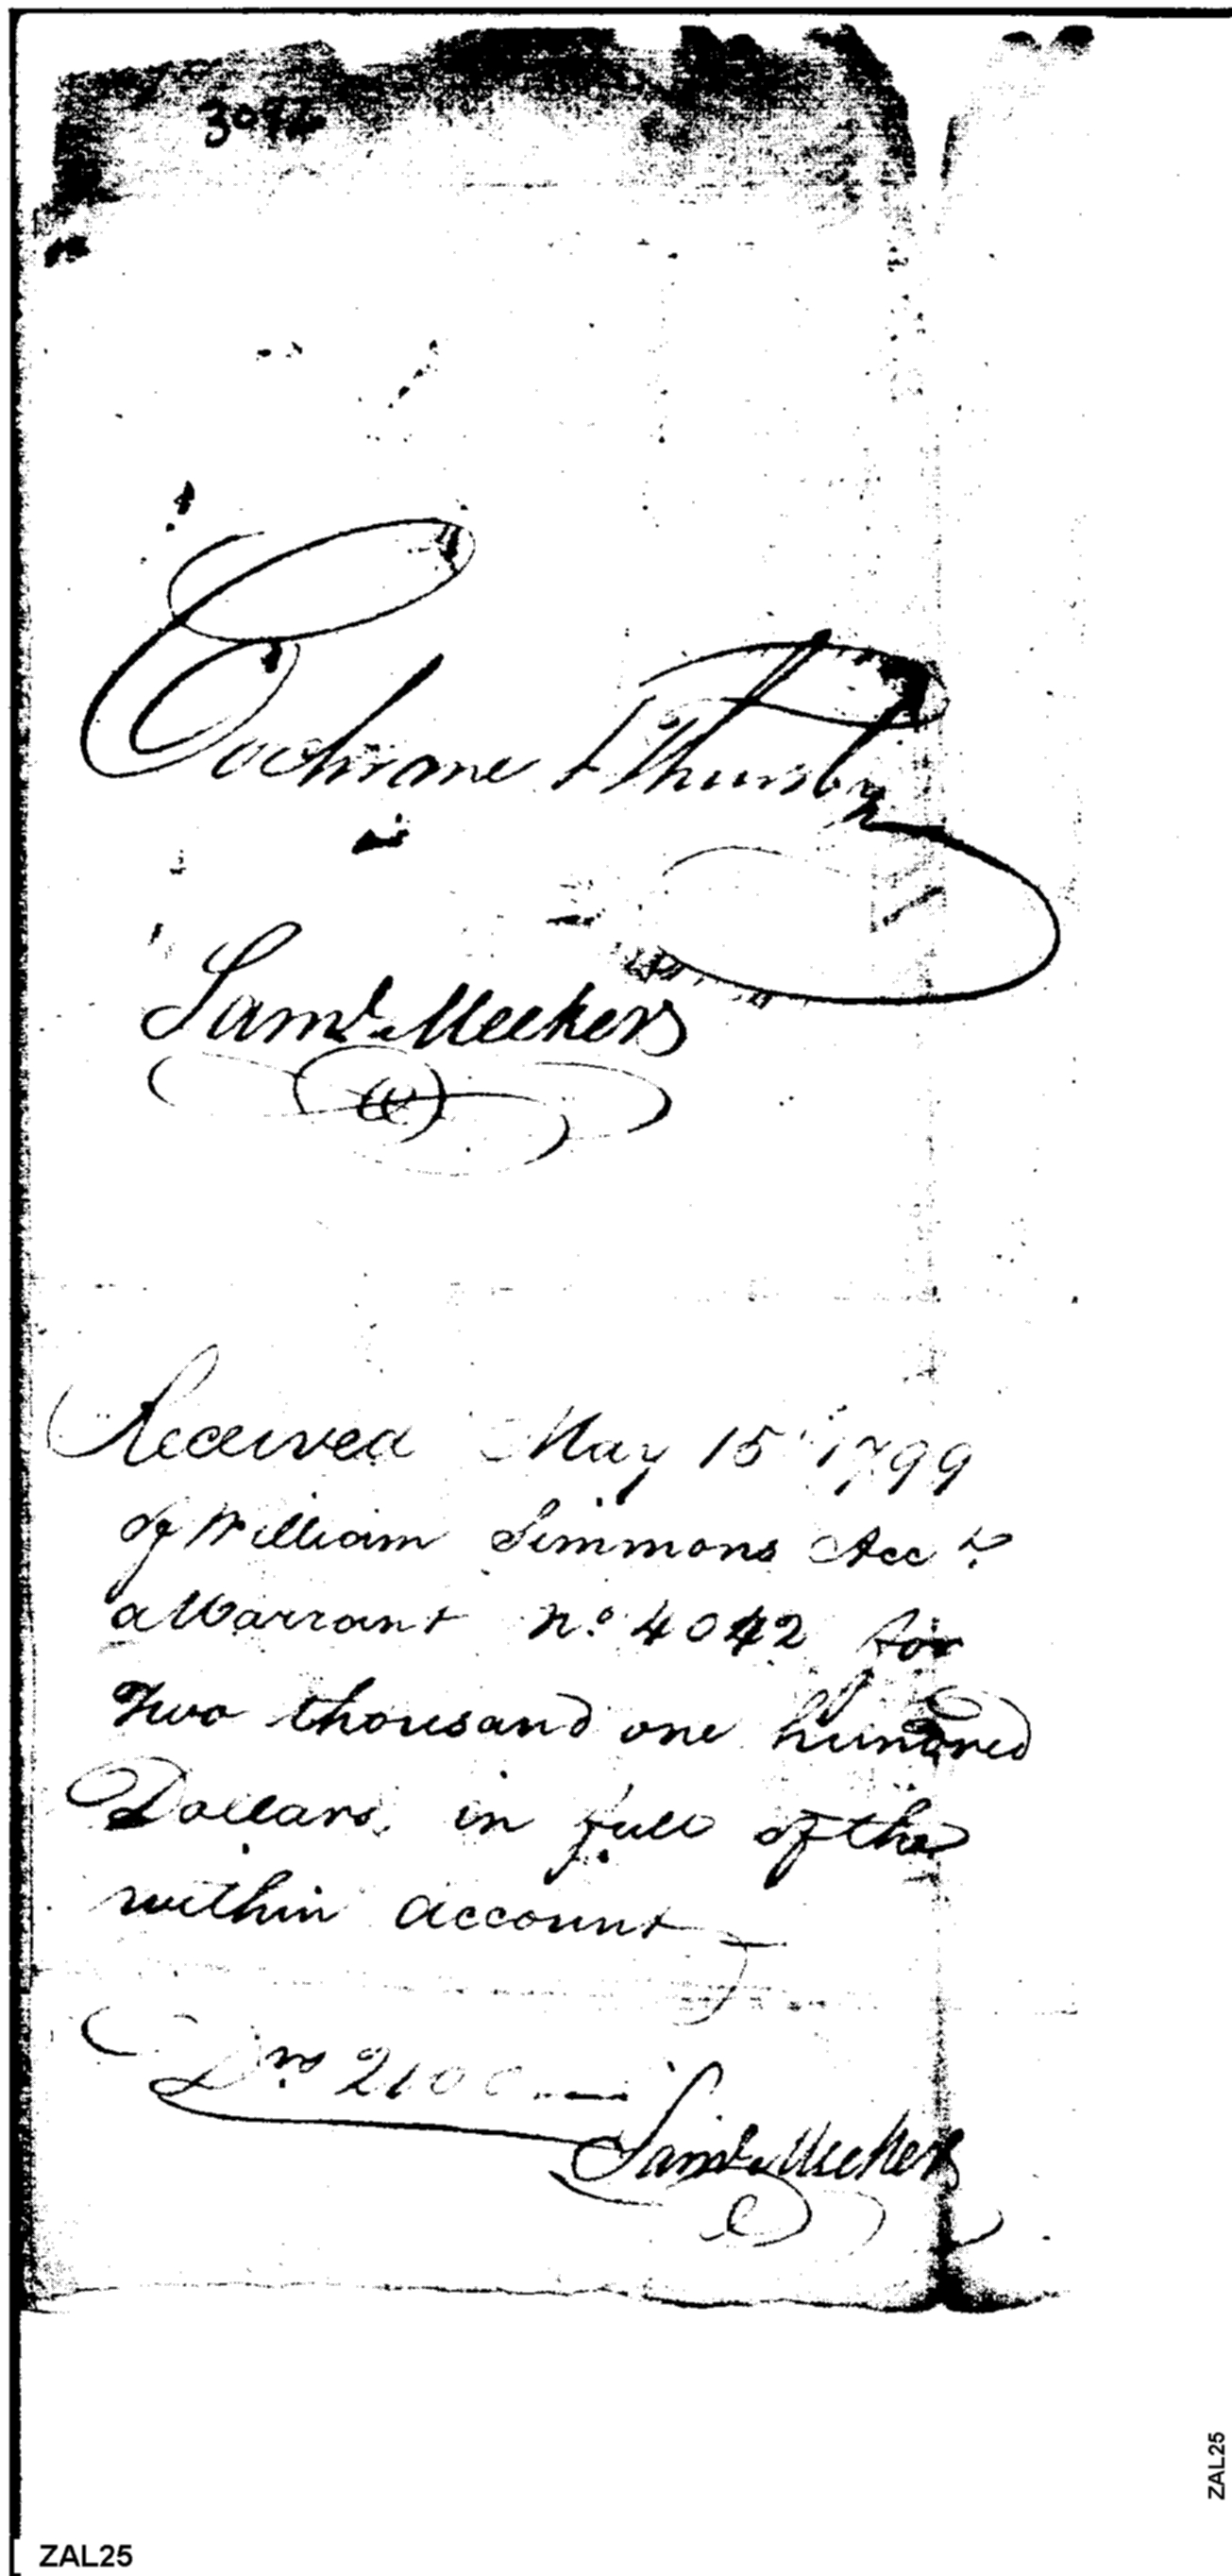 Cochrane & Thursby
Saml. Meeker
Received May 15 1799
of William Simmons Acct.
a Warrant No. 4042 for
two thousand one hundred
Dollars, in full of the
within account
Drs 2100 —
Saml. Meeker
ZAL25
ZAL25